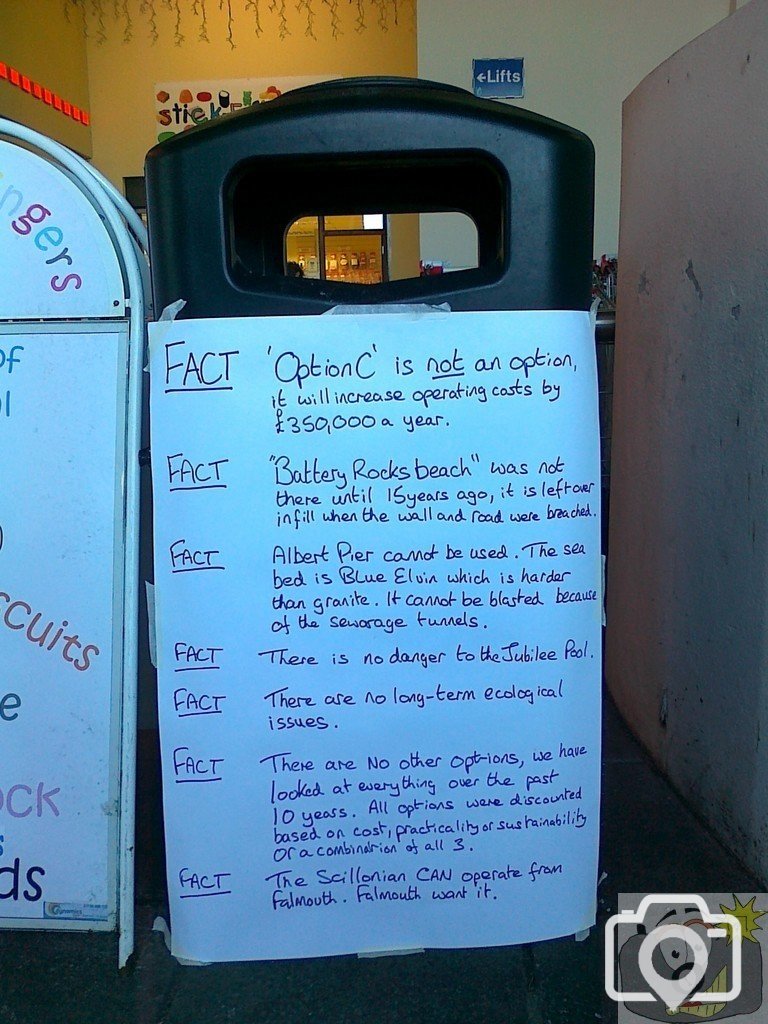 ←Lifts
stick
ngers
of
l
FACT 'Option C' is not an option,
it will increase operating costs by
£350,000 a year.
FACT "Battery Rocks beach" was not
there until 15 years ago, it is left over
infill when the wall and road were breached.
FACT Albert Pier cannot be used. The sea
bed is Blue Elvin which is harder
than granite. It cannot be blasted because
of the sewarage tunnels.
FACT There is no danger to the Jubilee Pool.
FACT There are no long-term ecological
issues.
FACT There are NO other opt-ions, we have
looked at everything over the past
10 years. All options were discounted
based on cost, practicality or sustainability
or a combination of all 3.
FACT The Scillonian CAN operate from
Falmouth. Falmouth want it.
scuits
e
ock
s
ds
dynamics